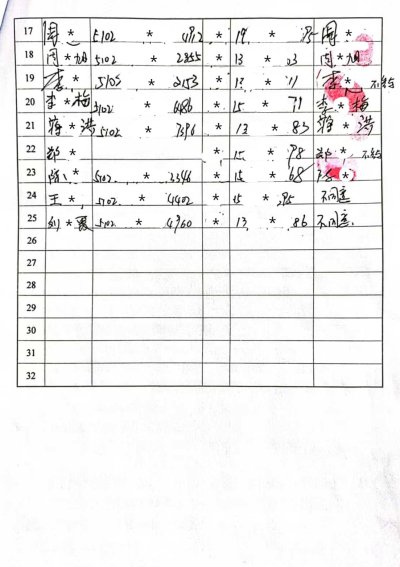 17 周 * 5102 * 4912 * 19 * 周 *
18 周 * 旭 5102 * 2855 * 13 * 03 周 * 旭
19 李 * 5102 * 2153 * 13 * 11 李 *
20 李 * 梅 5102 * 6486 * 15 * 71 李 * 梅
21 蒋 * 洪 5102 * 7396 * 13 * 83 蒋 * 洪
22 郑 * * * 15 * 98 郑 *
23 陈 * 5102 * 3346 * 15 * 68 *
24 王 * 5102 * 4402 * 15 * 95 不同意
25 刘 * 5102 * 4960 * 13 * 86 不同意.
26
27
28
29
30
31
32